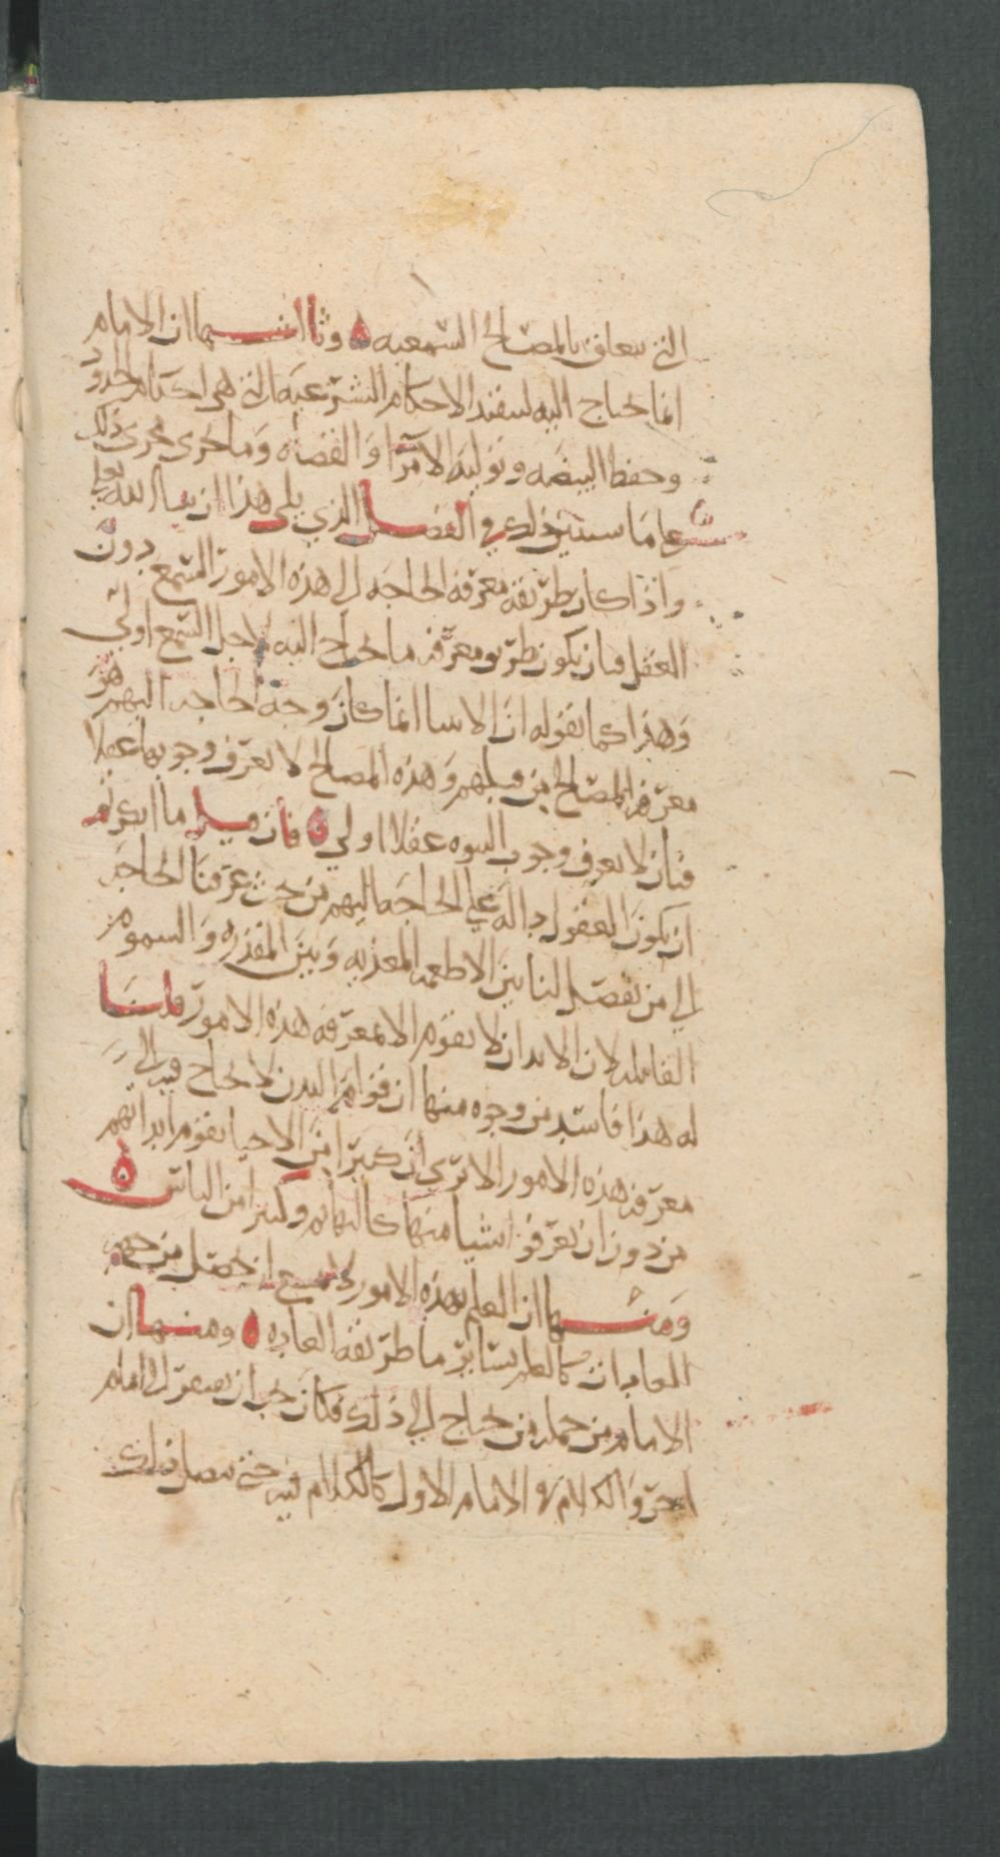 التي تتعلق بالمصالح السمعيه وثانيها ان الامام
انما يحتاج اليه لتنفيذ الاحكام الشرعيه التي هي اقامه الحدود
وحفظ البيضه وتوليه الامرا والقضاه وما جرى مجرى ذلك
على ما سنبين ذلك في الفصل الذي يلي هذا ان شا الله تعالى
واذا كان طريقه معرفه الحاجه الى هذه الامور السمع دون
العقل فبان يكون طريق معرفه ما يحتاج اليه لاجل السمع اولى
وهذا كما نقوله ان الانبيا انما كان وجه الحاجه اليهم هو
معرفه المصالح من قبلهم وهذه المصالح لا يعرف وجوبها عقلا
فبان لا يعرف وجوب النبوه عقلا اولى فان قيل ما انكرتم
ان يكون العقول داله على الحاجه اليهم من حيث عرفنا الحاجه
الى من يفصل لنا بين الاطعمه المغذيه وبين المقذره والسموم
القاتله لان الابدان لا تقوم الا بمعرفه هذه الامور قلنا
له هذا فاسد من وجوه منها ان قوام البدن لا يحتاج فيه الى
معرفه هذه الامور الا ترى ان كثيرا من الاحيا تقوم ابدانهم
من دون ان تعرفوا شيا منها كالبهائم وكثير من الناس
ومنها ان العلم بهذه الامور لا يمتنع ان يحصل من جهه
العادات كالعلم بسائر ما طريقه العاده ومنها ان
الامام من جمله من يحتاج الى ذلك فكان يجب ان يفتقر الى امام
اخر والكلام في الامام الاول كالكلام فيه حتى يتصل ذلك